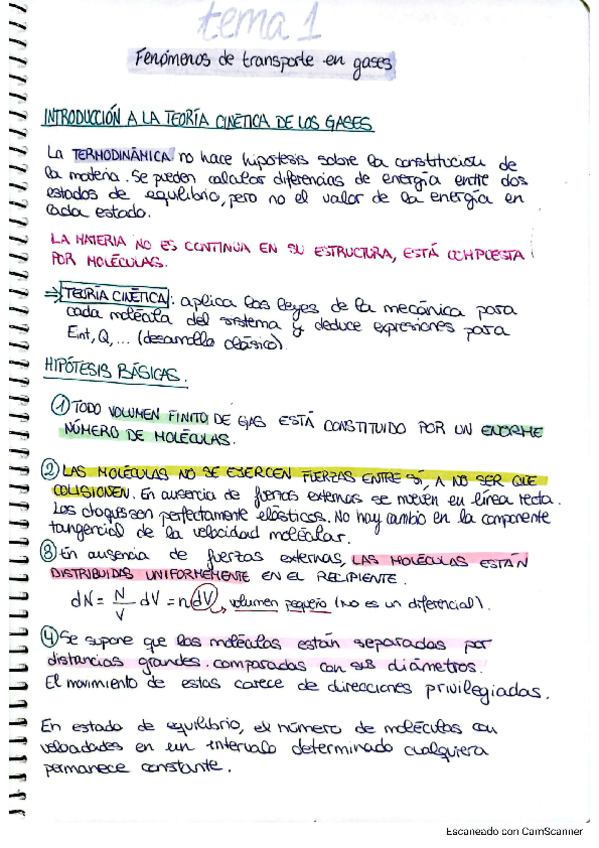 tema 1
Fenómenos de transporte en gases
INTRODUCCIÓN A LA TEORÍA CINÉTICA DE LOS GASES
La TERMODINÁMICA no hace hipótesis sobre la constitución de
la materia. Se pueden calcular diferencias de energía entre dos
estados de equilibrio, pero no el valor de la energía en
cada estado.
LA MATERIA NO ES CONTINUA EN SU ESTRUCTURA, ESTÁ COMPUESTA
POR MOLÉCULAS.
⇒ TEORÍA CINÉTICA: aplica las leyes de la mecánica para
cada molécula del sistema y deduce expresiones para
Eint, Q, ... (desarrollo clásico).
HIPÓTESIS BÁSICAS.
① TODO VOLUMEN FINITO DE GAS ESTÁ CONSTITUIDO POR UN ENORME
NÚMERO DE MOLÉCULAS.
② LAS MOLÉCULAS NO SE EJERCEN FUERZAS ENTRE SÍ, A NO SER QUE
COLISIONEN. En ausencia de fuerzas externas se mueven en línea recta.
Los choques son perfectamente elásticos. No hay cambio en la componente
tangencial de la velocidad molecular.
③ En ausencia de fuerzas externas, LAS MOLÉCULAS ESTÁN
DISTRIBUIDAS UNIFORMEMENTE EN EL RECIPIENTE.
dN = N/V dV = n dV, volumen pequeño (no es un diferencial).
④ Se supone que las moléculas están separadas por
distancias grandes comparadas con sus diámetros.
El movimiento de estas carece de direcciones privilegiadas.
En estado de equilibrio, el número de moléculas con
velocidades en un intervalo determinado cualquiera
permanece constante.
Escaneado con CamScanner